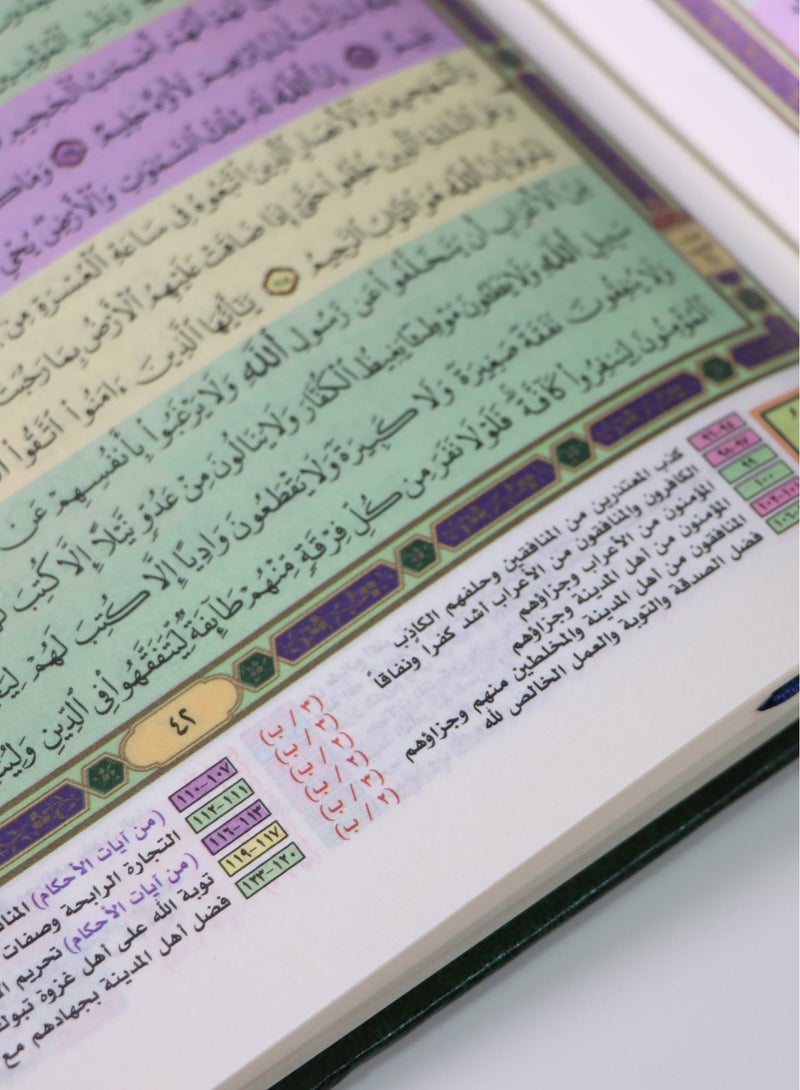 وَبَشِّرِ ٱلْمُؤْمِنِينَ
لَهُمْ أَنَّهُمْ أَصْحَٰبُ ٱلْجَحِيمِ
إِنَّ إِبْرَٰهِيمَ لَأَوَّٰهٌ حَلِيمٌ ١١٤ وَمَا
عَلِيمٌ ١١٥ إِنَّ ٱللَّهَ لَهُۥ مُلْكُ ٱلسَّمَٰوَٰتِ وَٱلْأَرْضِ يُحْيِ
وَٱلْمُهَٰجِرِينَ وَٱلْأَنصَارِ ٱلَّذِينَ ٱتَّبَعُوهُ فِى سَاعَةِ ٱلْعُسْرَةِ مِنۢ
وَعَلَى ٱلثَّلَٰثَةِ ٱلَّذِينَ خُلِّفُوا۟ حَتَّىٰٓ إِذَا ضَاقَتْ عَلَيْهِمُ ٱلْأَرْضُ بِمَا رَحُبَتْ
لِيَتُوبُوٓا۟ إِنَّ ٱللَّهَ هُوَ ٱلتَّوَّابُ ٱلرَّحِيمُ ١١٨ يَٰٓأَيُّهَا ٱلَّذِينَ ءَامَنُوا۟ ٱتَّقُوا۟
مِّنَ ٱلْأَعْرَابِ أَن يَتَخَلَّفُوا۟ عَن رَّسُولِ ٱللَّهِ وَلَا يَرْغَبُوا۟ بِأَنفُسِهِمْ عَن
سَبِيلِ ٱللَّهِ وَلَا يَطَـُٔونَ مَوْطِئًا يَغِيظُ ٱلْكُفَّارَ وَلَا يَنَالُونَ مِنْ عَدُوٍّ نَّيْلًا إِلَّا كُتِبَ
وَلَا يُنفِقُونَ نَفَقَةً صَغِيرَةً وَلَا كَبِيرَةً وَلَا يَقْطَعُونَ وَادِيًا إِلَّا كُتِبَ لَهُمْ
ٱلْمُؤْمِنُونَ لِيَنفِرُوا۟ كَآفَّةً فَلَوْلَا نَفَرَ مِن كُلِّ فِرْقَةٍ مِّنْهُمْ طَآئِفَةٌ لِّيَتَفَقَّهُوا۟ فِى ٱلدِّينِ
٤٢
٩٤-٩٦ كذب المعتذرين من المنافقين وحلفهم الكاذب
٩٧-٩٨ الكافرون والمنافقون من الأعراب أشد كفرا ونفاقاً
٩٩ المؤمنون من الأعراب وجزاؤهم
١٠٠ المؤمنون من أهل المدينة وجزاؤهم
١٠١-١٠٢ المنافقون من أهل المدينة والمخلطين منهم وجزاؤهم
فضل الصدقة والتوبة والعمل الخالص لله
١٠٧-١١٠ (من آيات الأحكام)
١١١-١١٢ التجارة الرابحة وصفات
١١٣-١١٦ (من آيات الأحكام) تحريم
١١٧-١١٩ توبة الله على أهل غزوة تبوك
١٢٠-١٢٣ فضل أهل المدينة بجهادهم مع